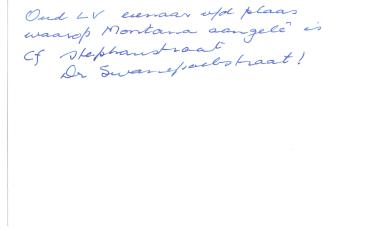 Oud LV eienaar v/d plaas
waarop Montana aangelê is
Cf Stephanstraat
Dr Swanepoelstraat!